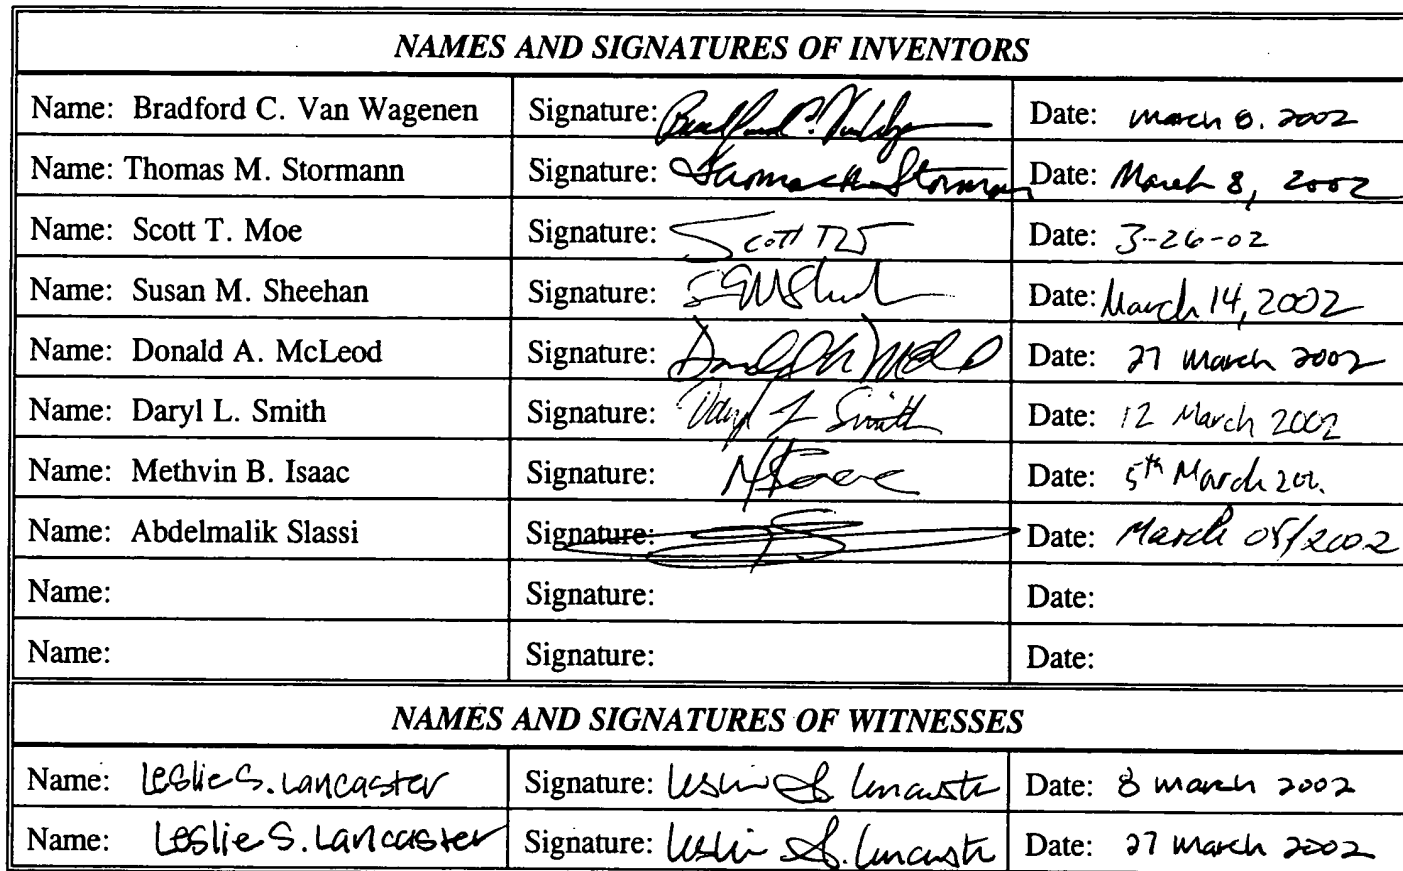 NAMES AND SIGNATURES OF INVENTORS
Name: Bradford C. Van Wagenen Signature: Date: March 8. 2002
Name: Thomas M. Stormann Signature: Thomas M Stormann Date: March 8, 2002
Name: Scott T. Moe Signature: Scott T Date: 3-26-02
Name: Susan M. Sheehan Signature: Date: March 14, 2002
Name: Donald A. McLeod Signature: Date: 27 March 2002
Name: Daryl L. Smith Signature: Daryl L Smith Date: 12 March 2002
Name: Methvin B. Isaac Signature: Date: 5th March 200.
Name: Abdelmalik Slassi Signature: Date: March 05/2002
Name: Signature: Date:
Name: Signature: Date:
NAMES AND SIGNATURES OF WITNESSES
Name: Leslie S. Lancaster Signature: Leslie S. Lancaster Date: 8 March 2002
Name: Leslie S. Lancaster Signature: Leslie S. Lancaster Date: 27 March 2002